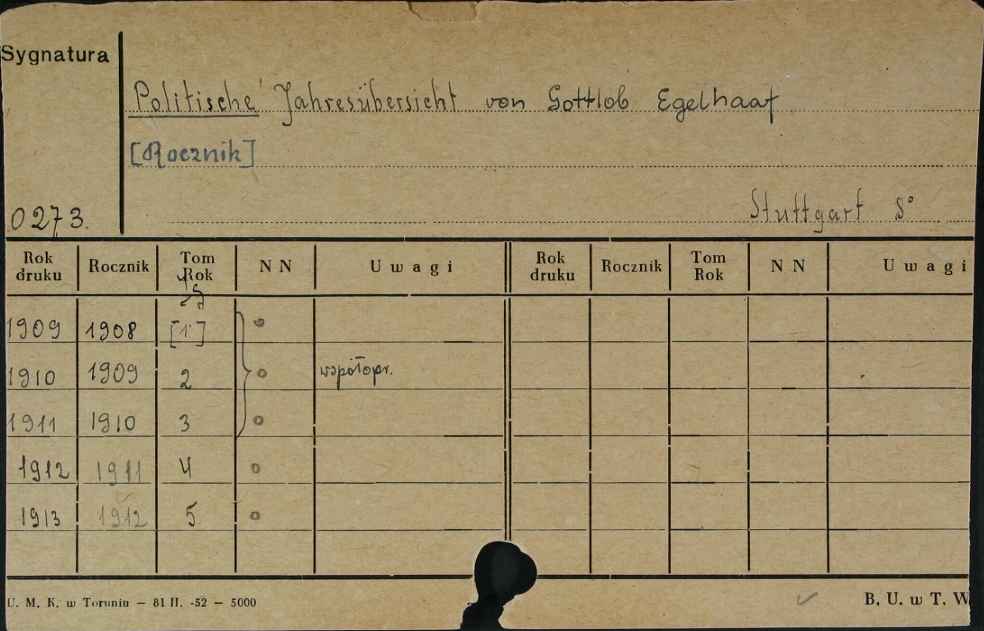 Sygnatura
Politische Jahresübersicht von Gottlob Egelhaaf
[Rocznik]
0273. Stuttgart 8°
Rok druku Rocznik Tom Rok N N Uwagi Rok druku Rocznik Tom Rok N N Uwagi
1909 1908 [1]
1910 1909 2 współopr.
1911 1910 3
1912 1911 4
1913 1912 5
U. M. K. w Toruniu — 81 II. -52 — 5000 B. U. w T. W